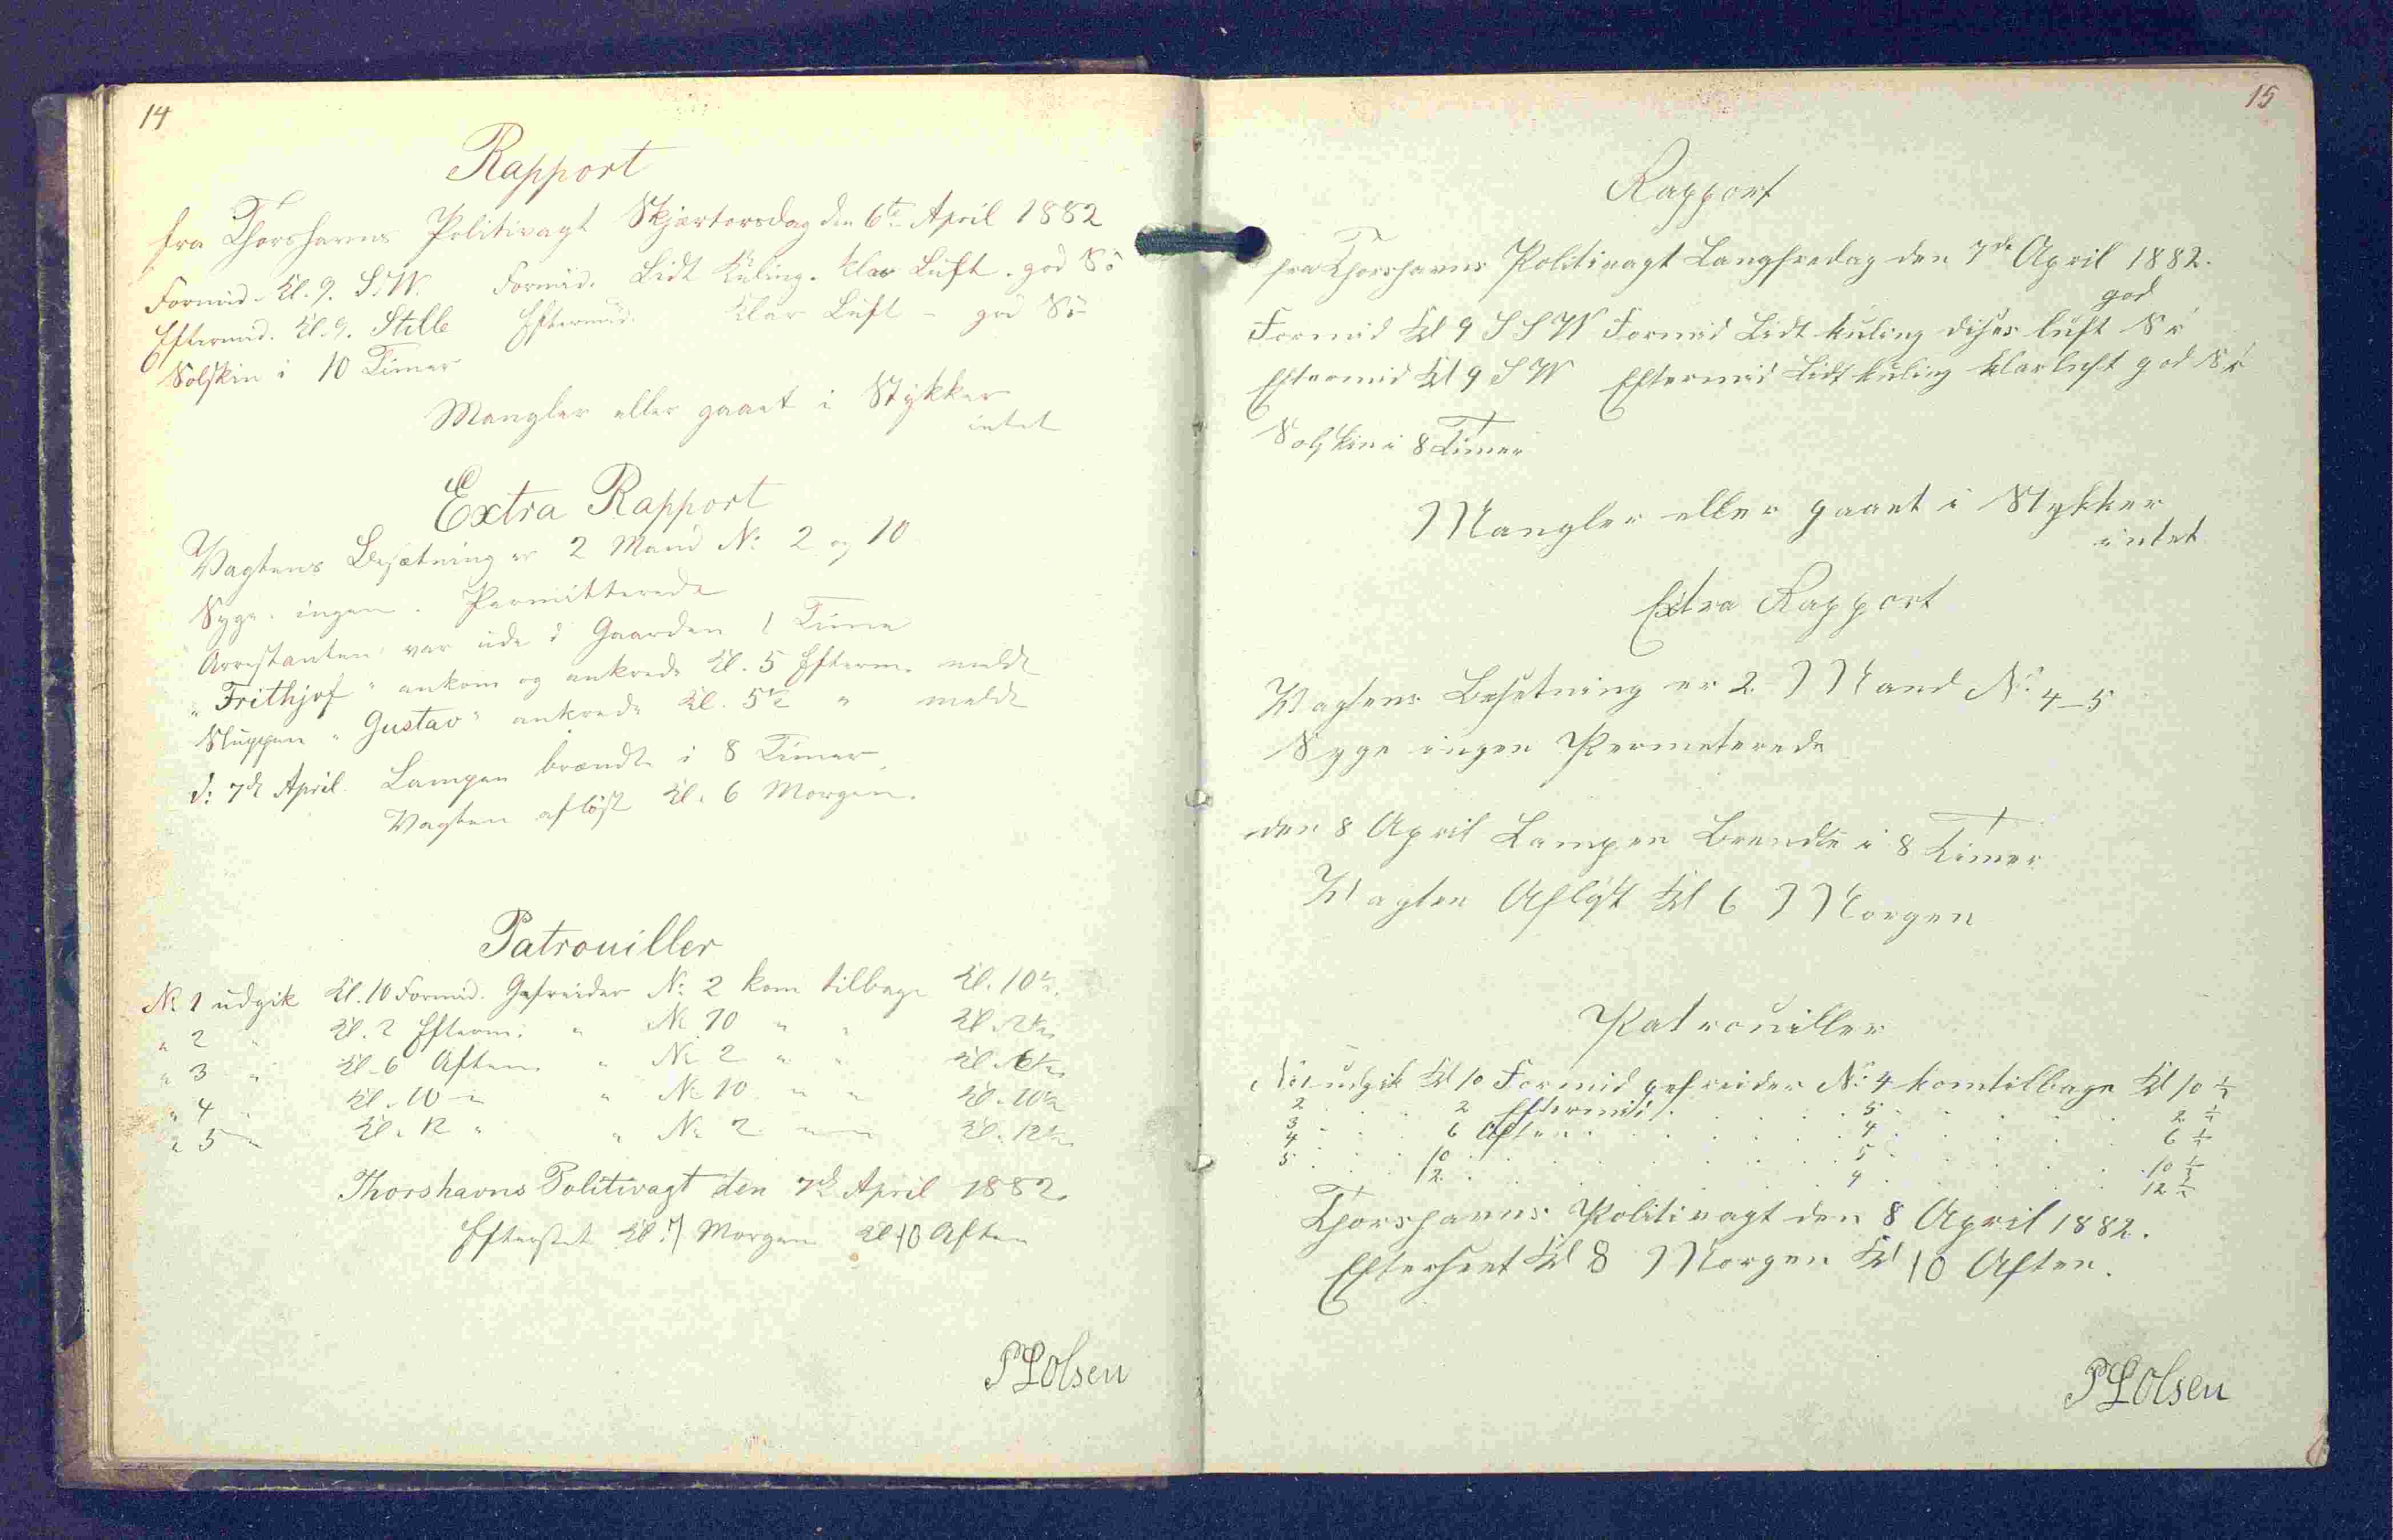 14
Rapport
fra Thorshavns Politivagt Skjærtorsdag den 6te April 1882
Formid. Kl. 9. S.W. Formid. Lidt Kuling. klar Luft. god Sö
Eftermid. Kl. 9. Stille Eftermid. Klar Luft - god Sö
Solskin i 10 Timer
Mangler eller gaaet i Stykker
intet
Extra Rapport
Vagtens Besætning er 2 Mand No 2 og 10
Syge. ingen. Permitterede
Arrestanten var ude i Gaarden 1 Time
"Frithjof" ankom og ankrede Kl. 5 Efterm. meldt
Sluppen "Gustav" ankrede Kl. 5½ " meldt
d: 7de April. Lampen brændte i 8 Timer.
Vagten aflöst Kl. 6 Morgen.
Patrouiller
No 1 udgik Kl. 10 Formid. Gefreider No 2 kom tilbage Kl. 10½.
" 2 " Kl. 2 Efterm. " No 10 " " Kl. 2½
" 3 " Kl. 6 Aften " No 2 " " Kl. 6½
" 4 " Kl. 10 " " No 10 " " Kl. 10½
" 5 " Kl. 12 " " No 2 " " Kl. 12½
Thorshavns Politivagt den 7de April 1882.
Efterset Kl. 7 Morgen Kl 10 Aften
P L Olsen
15
Rapport
fra Thorshavns Politivagt Langfredag den 7de April 1882.
Formid Kl 9 S S W Formid Lidt kuling diset luft god Sö
Eftermid Kl 9 S W Eftermid Lidt kuling klar luft god Sö
Solskin i 8 Timer
Mangler eller gaaet i Stykker
intet
Extra Rapport
Vagtens Besetning er 2 Mand No 4-5
Syge ingen Permeterede
den 8 April Lampen Brendte i 8 Timer
Vagten Aflöst Kl 6 Morgen
Patrouiller
No 1 udgik Kl 10 Formid gefreider No 4 kom tilbage Kl 10 ½
2 . . . 2 Eftermid . . . 5 . . . 2 ½
3 . . . 6 Aften . . . 4 . . . 6 ½
4 . . . 10 . . . 5 . . . 10 ½
5 . . . 12 . . . 4 . . . 12 ½
Thorshavns Politivagt den 8 April 1882.
Efterseet Kl 8 Morgen Kl 10 Aften.
P L Olsen